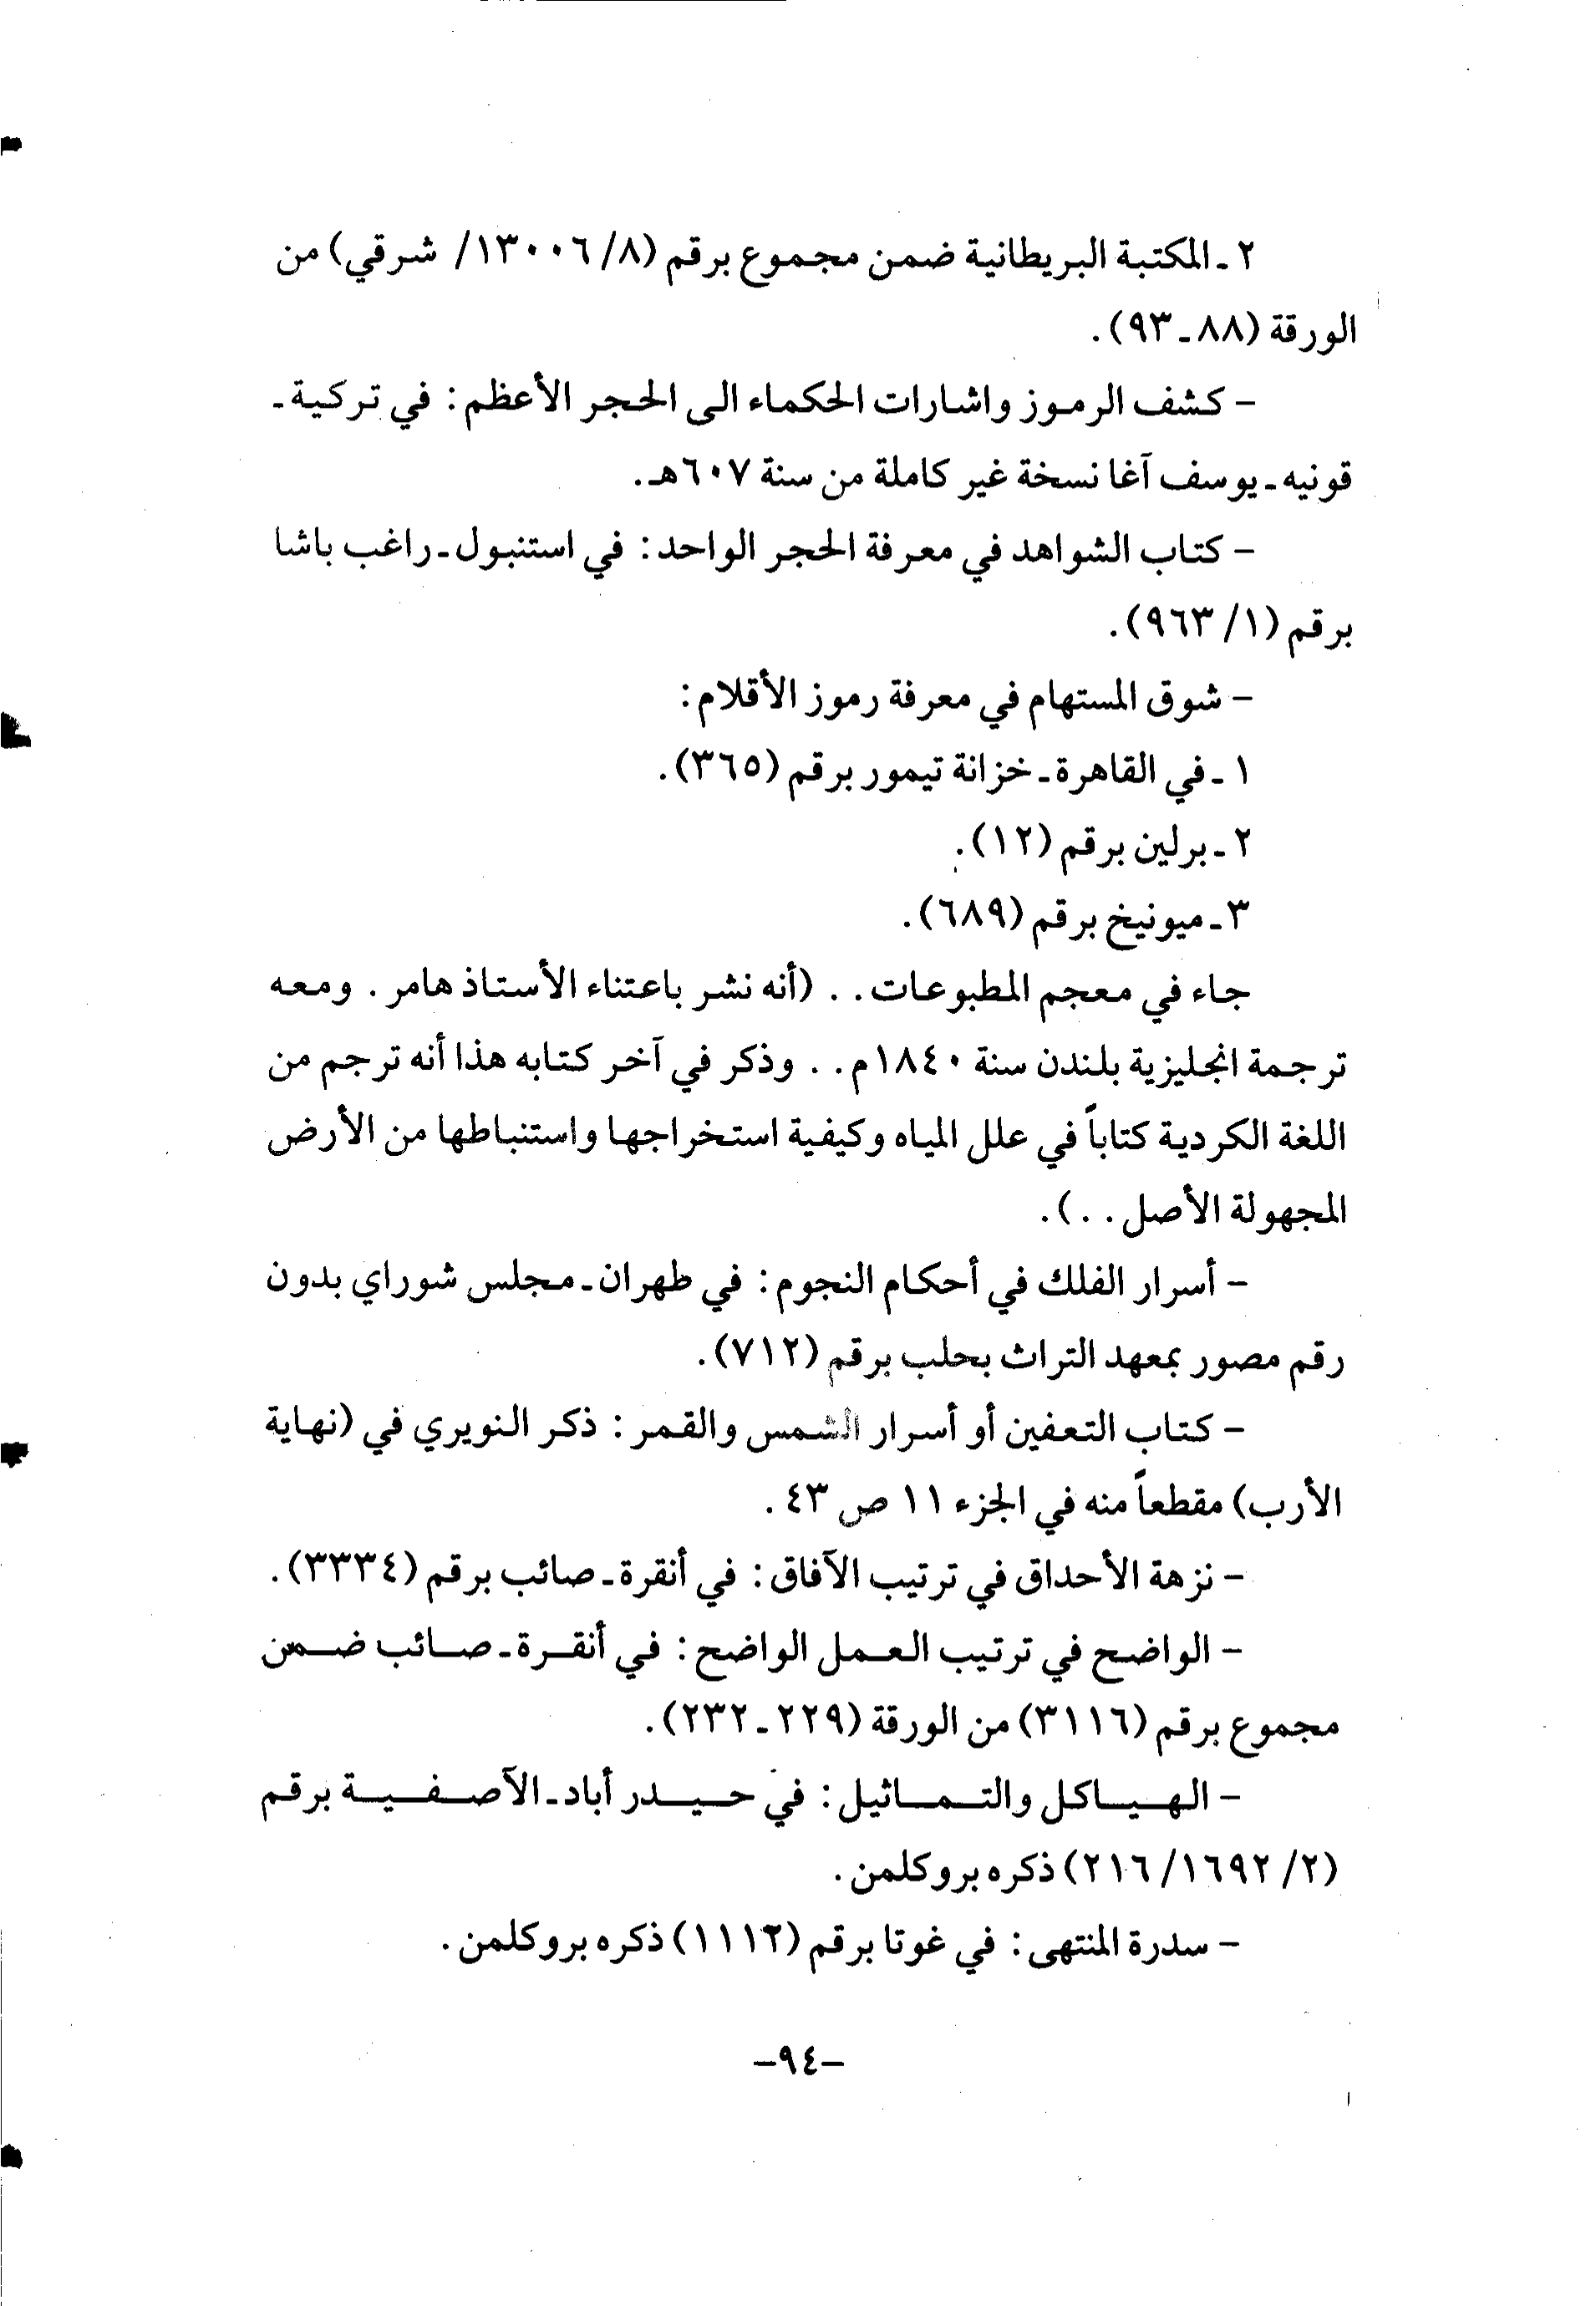 ٢ ـ المكتبة البريطانية ضمن مجموع برقم (٨/ ١٣٠٠٦/ شرقي) من
الورقة (٨٨ ـ ٩٣).
– كشف الرموز واشارات الحكماء الى الحجر الأعظم: في تركية ـ
قونيه ـ يوسف آغا نسخة غير كاملة من سنة ٦٠٧هـ.
– كتاب الشواهد في معرفة الحجر الواحد: في استنبول ـ راغب باشا
برقم (١/ ٩٦٣).
– شوق المستهام في معرفة رموز الأقلام:
١ ـ في القاهرة ـ خزانة تيمور برقم (٣٦٥).
٢ ـ برلين برقم (١٢).
٣ ـ ميونيخ برقم (٦٨٩).
جاء في معجم المطبوعات . . (أنه نشر باعتناء الأستاذ هامر. ومعه
ترجمة انجليزية بلندن سنة ١٨٤٠م . . وذكر في آخر كتابه هذا أنه ترجم من
اللغة الكردية كتاباً في علل المياه وكيفية استخراجها واستنباطها من الأرض
المجهولة الأصل . .).
– أسرار الفلك في أحكام النجوم: في طهران ـ مجلس شوراي بدون
رقم مصور بمعهد التراث بحلب برقم (٧١٢).
– كتاب التعفين أو أسرار الشمس والقمر: ذكر النويري في (نهاية
الأرب) مقطعاً منه في الجزء ١١ ص ٤٣.
– نزهة الأحداق في ترتيب الآفاق: في أنقرة ـ صائب برقم (٣٣٣٤).
– الواضح في ترتيب العمل الواضح: في أنقرة ـ صائب ضمن
مجموع برقم (٣١١٦) من الورقة (٢٢٩ ـ ٢٣٢).
– الهياكل والتماثيل: في حيدر أباد ـ الآصفية برقم
(٢/ ١٦٩٢/ ٢١٦) ذكره بروكلمن.
– سدرة المنتهى: في غوتا برقم (١١١٢) ذكره بروكلمن.
–٩٤–